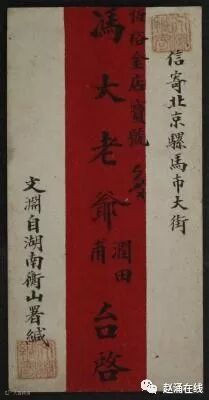 信寄北京騾馬市大街
恆裕金店寶號
馮大老爺甫潤田台啓
文淵自湖南衡山署緘
赵涌在线